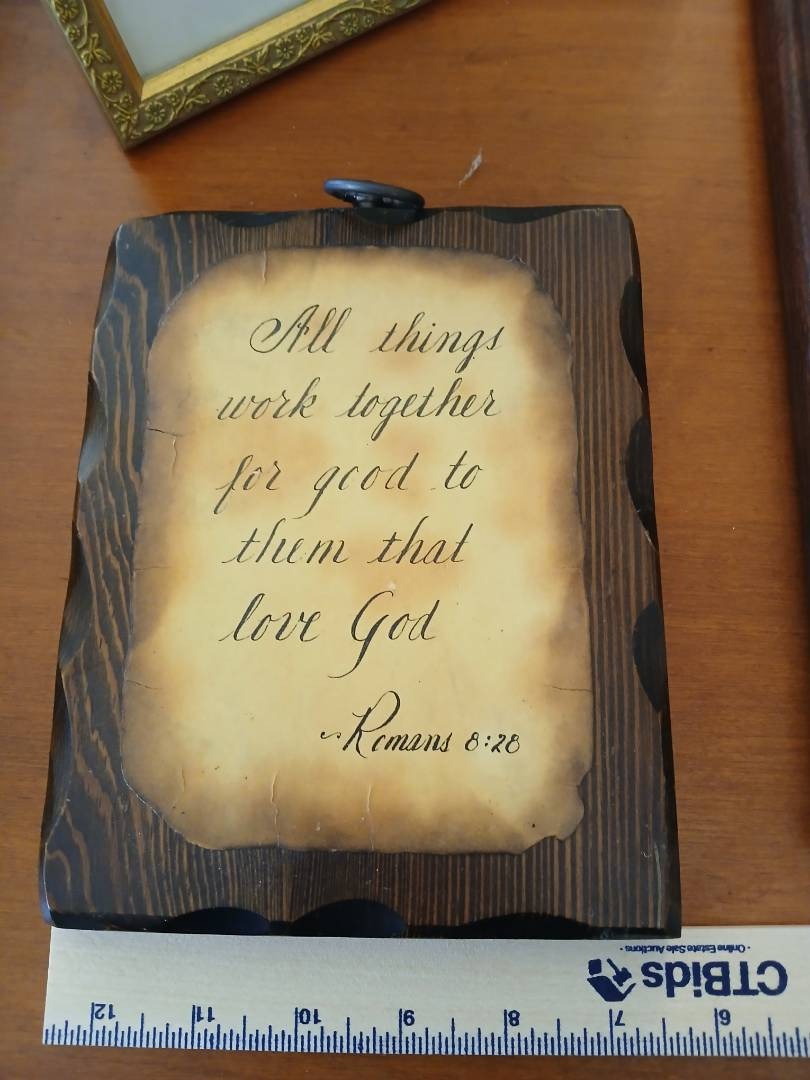 All things
work together
for good to
them that
love God
~Romans 8:28
CTBids
· Online Estate Sale Auctions ·
12 11 10 9 8 7 6